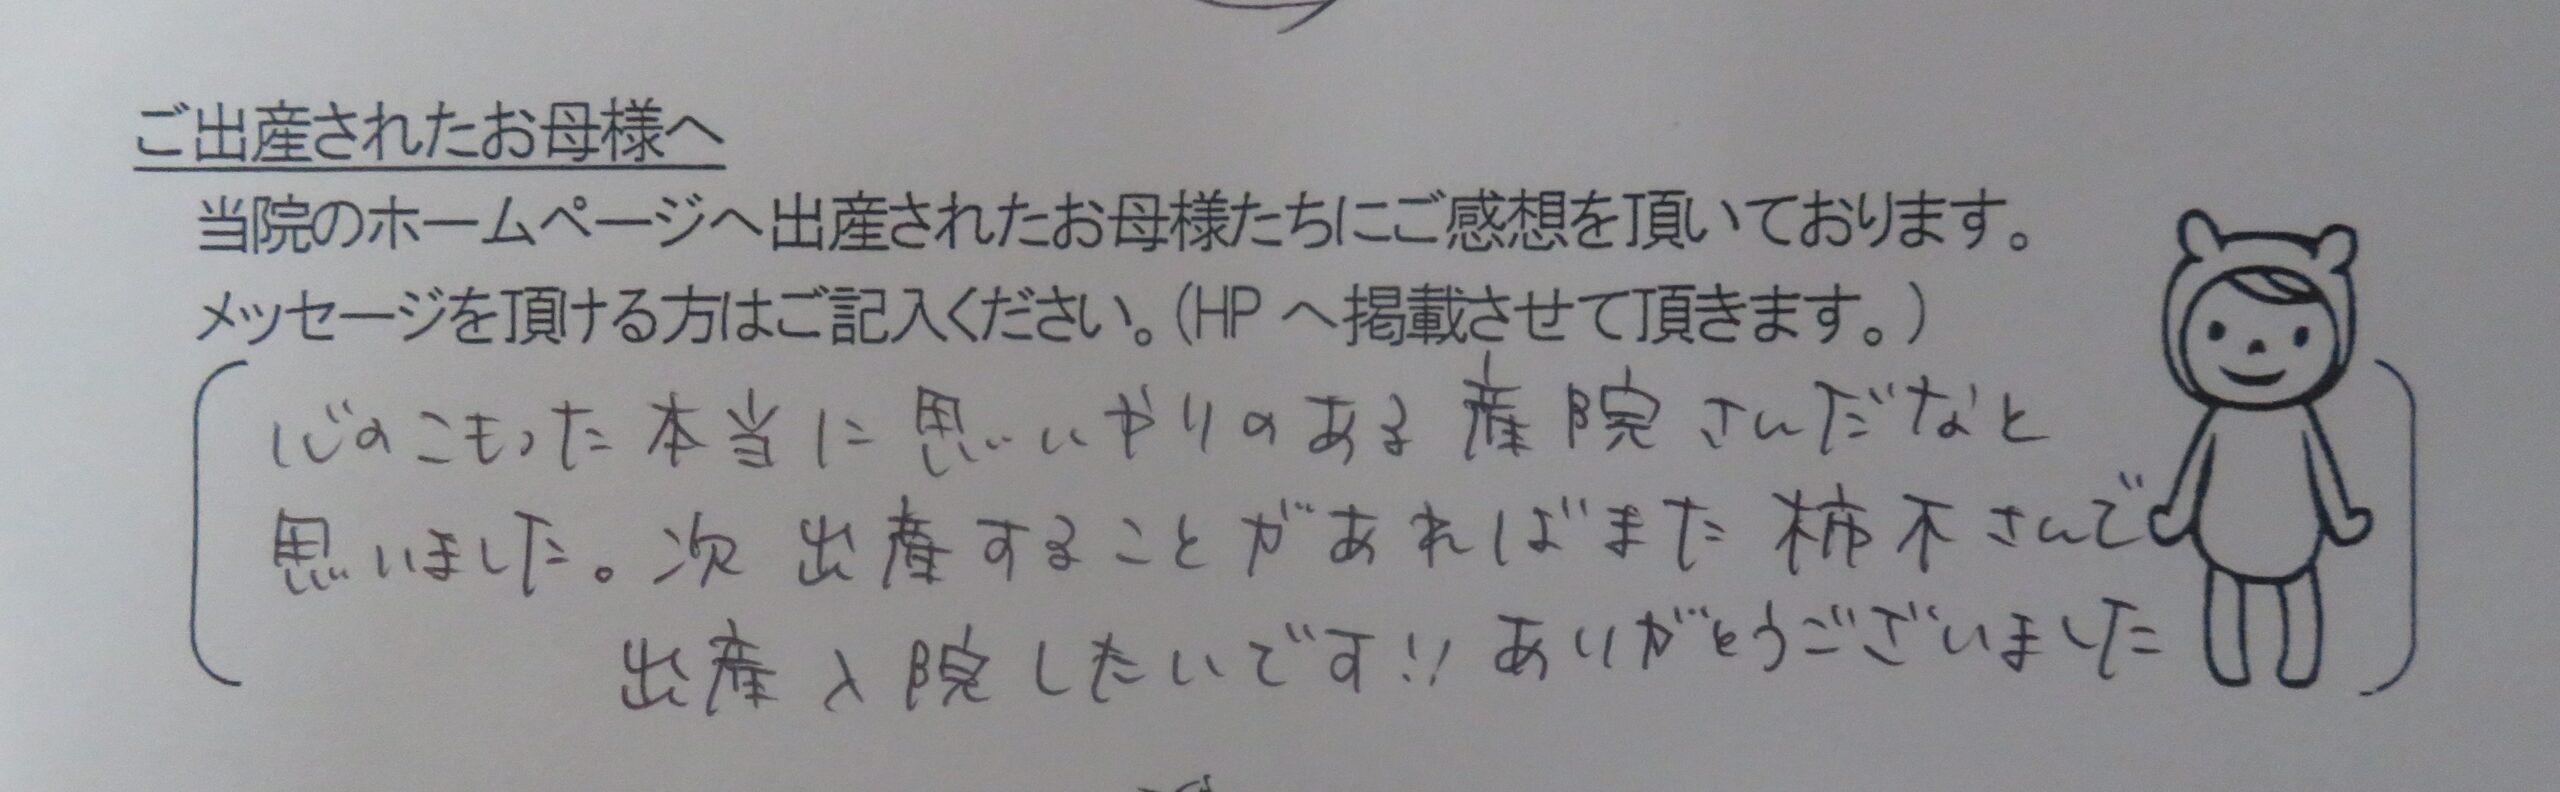 ご出産されたお母様へ
当院のホームページへ出産されたお母様たちにご感想を頂いております。
メッセージを頂ける方はご記入ください。(HP へ掲載させて頂きます。)
心のこもった本当に思いやりのある産院さんだなと
思いました。次出産することがあればまた柿木さんで
出産入院したいです!! ありがとうございました